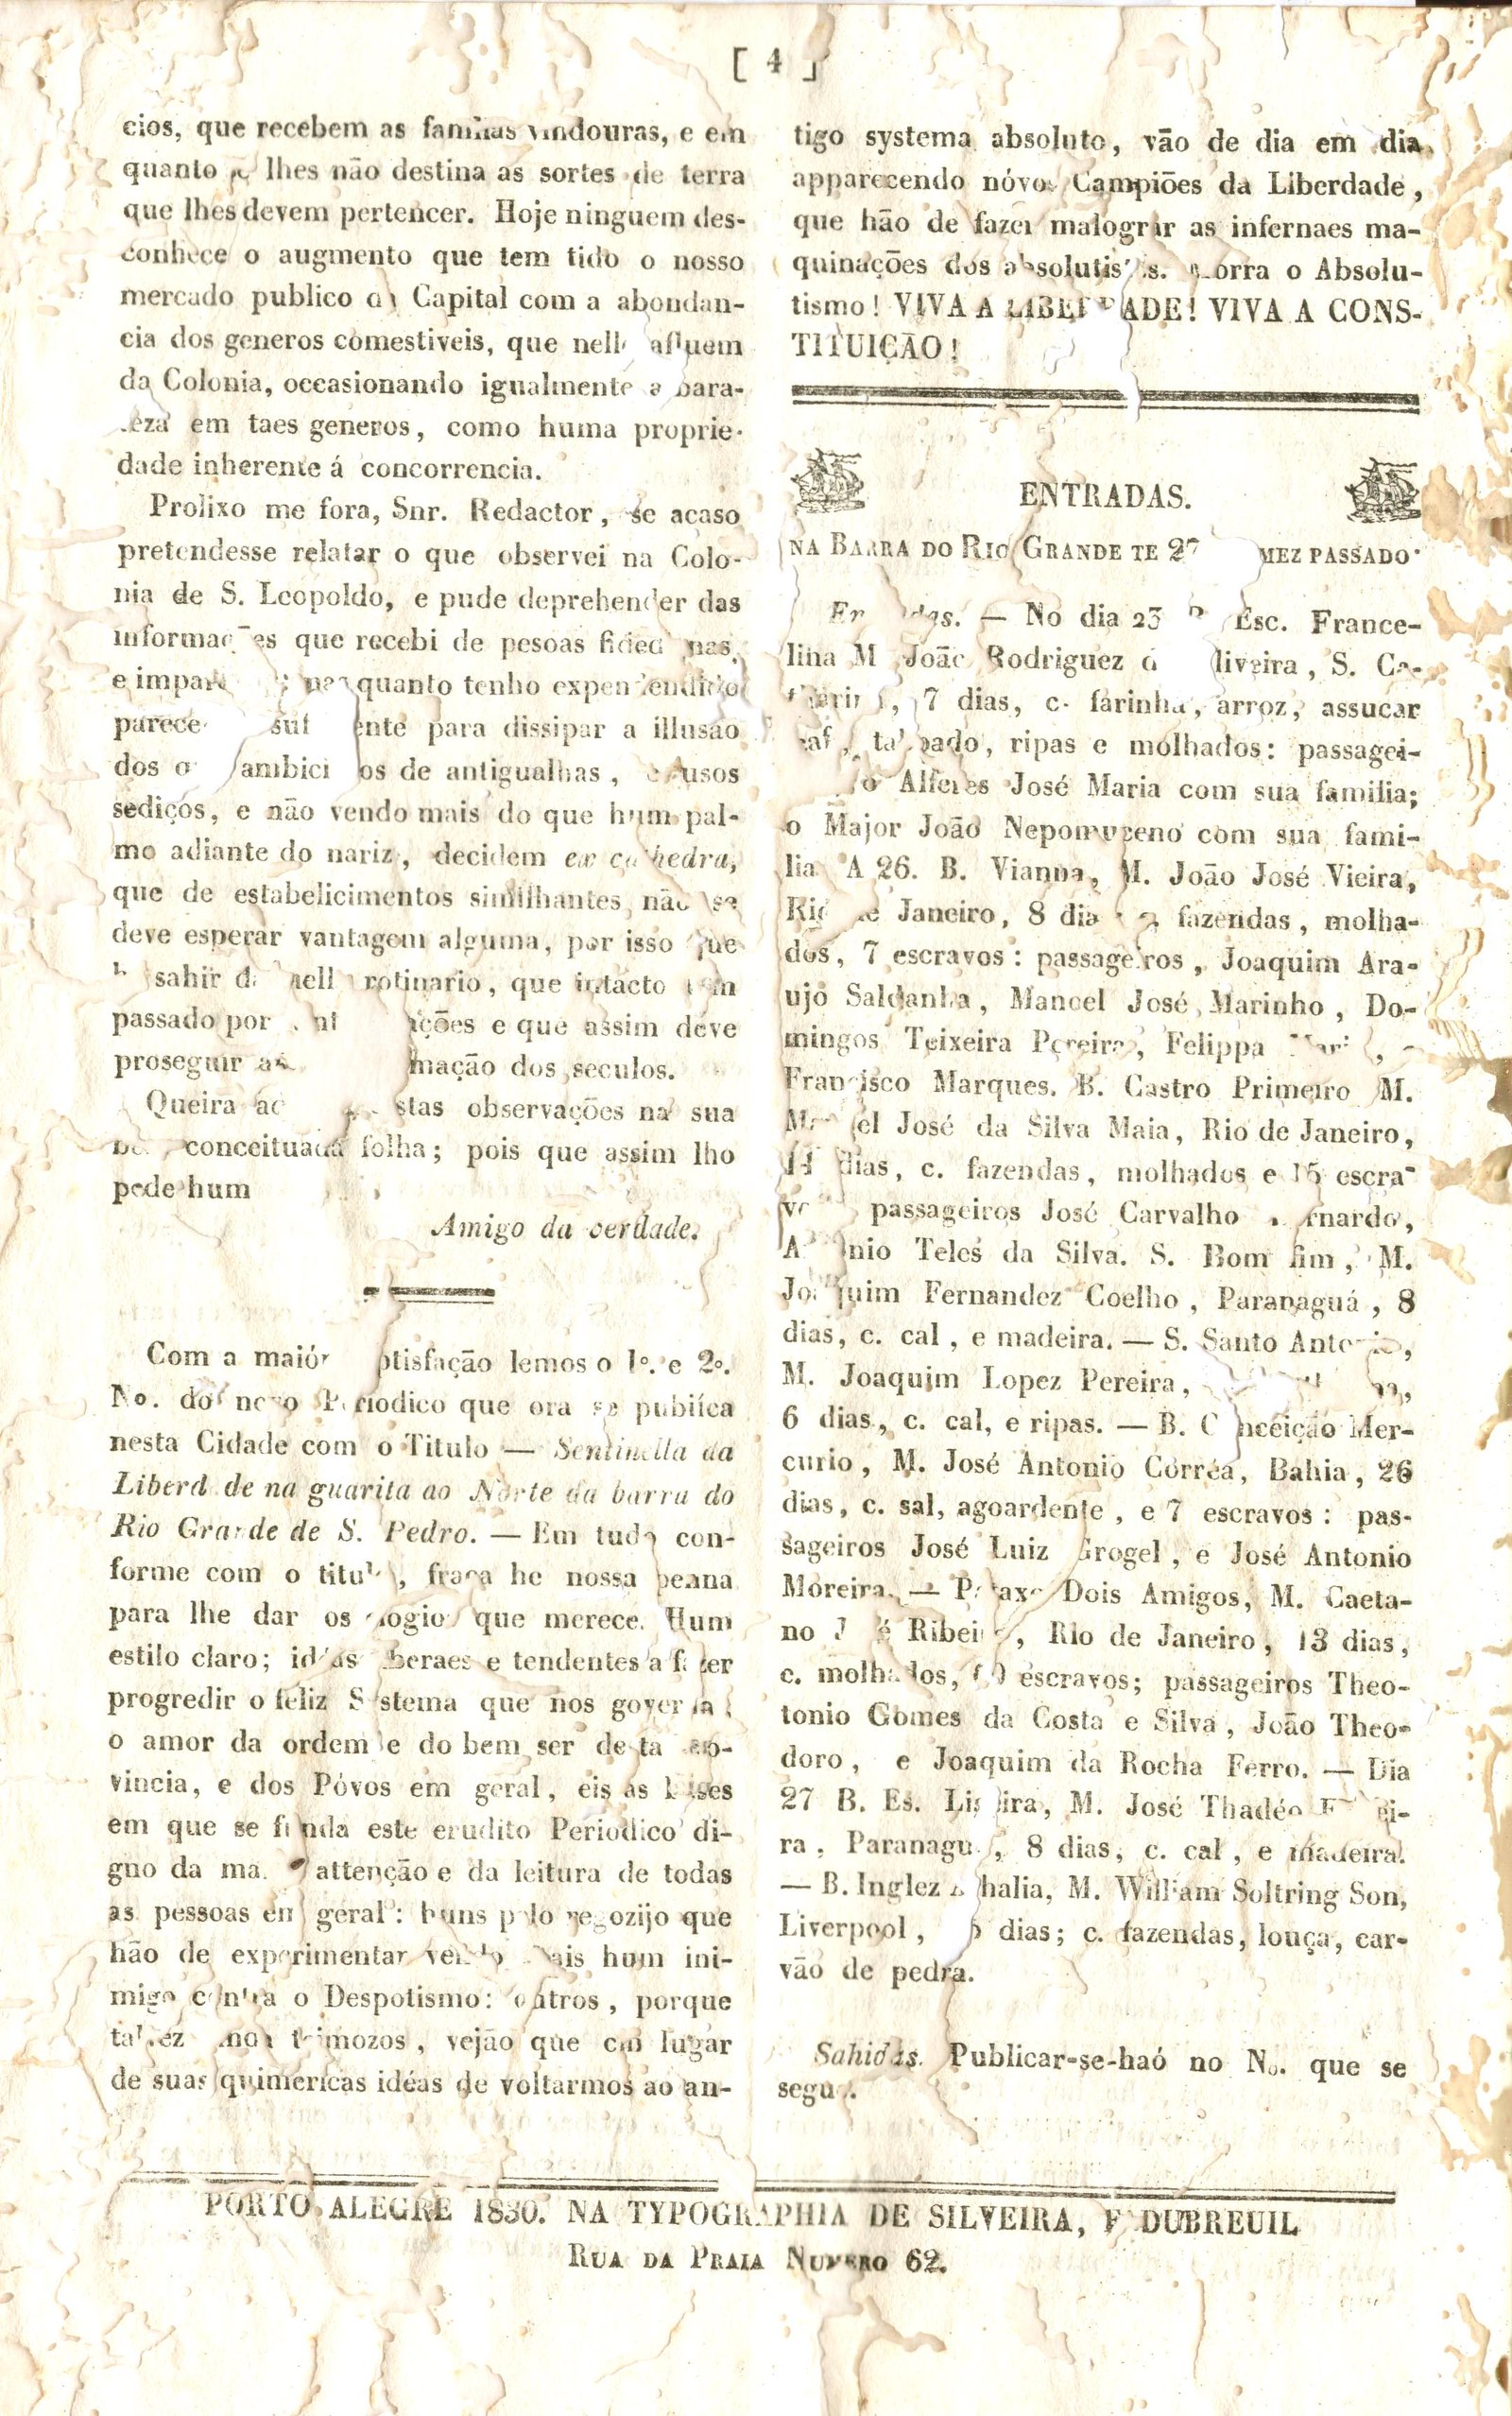 [ 4 ]
cios, que recebem as familias vindouras, e em
quanto se lhes não destina as sortes de terra
que lhes devem pertencer. Hoje ninguem des-
conhece o augmento que tem tido o nosso
mercado publico da Capital com a abondan-
cia dos generos comestiveis, que nelle afluem
da Colonia, occasionando igualmente a bara-
teza em taes generos, como huma proprie-
dade inherente á concorrencia.
Prolixo me fora, Snr. Redactor, se acaso
pretendesse relatar o que observei na Colo-
nia de S. Leopoldo, e pude deprehender das
informações que recebi de pesoas fidedignas,
e quanto tenho expendendido
parece sufficiente para dissipar a illusão
dos de antigualhas, usos
sediços, e não vendo mais do que hum pal-
mo adiante do nariz, decidem ex cathedra,
que de estabelicimentos similhantes não se
deve esperar vantagem alguma, por isso que
he sahir d rotinario, que intacto tem
passado por e que assim deve
proseguir dos seculos.
Queira estas observações na sua
bem conceituada folha; pois que assim lho
pede hum
Amigo da verdade.
Com a maiór satisfação lemos o 1º. e 2º.
No. do novo Periodico que ora se publica
nesta Cidade com o Titulo — Sentinella da
Liberdade na guarita ao Norte da barra do
Rio Grande de S. Pedro. — Em tudo con-
forme com o titulo, fraca he nossa penna
para lhe dar os elogios que merece. Hum
estilo claro; idéas liberaes e tendentes a fazer
progredir o feliz Systema que nos governa;
o amor da ordem e do bem ser desta Pro-
vincia, e dos Póvos em geral, eis as bases
em que se funda este erudito Periodico di-
gno da maior attenção e da leitura de todas
as pessoas em geral: huns pelo regozijo que
hão de experimentar vendo mais hum ini-
migo contra o Despotismo: outros, porque
talvez teimozos, vejão que em lugar
de suas quimericas idéas de voltarmos ao an-
tigo systema absoluto, vão de dia em dia
apparecendo nóvos Campiões da Liberdade,
que hão de fazer malograr as infernaes ma-
quinações dos absolutistas. Morra o Absolu-
tismo! VIVA A LIBERDADE! VIVA A CONS-
TITUIÇÃO!
ENTRADAS.
NA BARRA DO RIO GRANDE TE 27 MEZ PASSADO
Entradas. — No dia 23 B. Esc. France-
lina M. João Rodriguez d'Oliveira, S. Ca-
tharina, 7 dias, c. farinha, arroz, assucar
taboado, ripas e molhados: passagei-
o Alferes José Maria com sua familia;
o Major João Nepomuceno com sua fami-
lia A 26. B. Vianna, M. João José Vieira,
Rio de Janeiro, 8 dias c. fazendas, molha-
dos, 7 escravos: passageiros, Joaquim Ara-
ujo Saldanha, Manoel José Marinho, Do-
mingos Teixeira Pereira, Felippa
Francisco Marques. B. Castro Primeiro M.
Manoel José da Silva Maia, Rio de Janeiro,
14 dias, c. fazendas, molhados e 15 escra-
vos passageiros José Carvalho Bernardo,
Antonio Teles da Silva. S. Bom fim, M.
Joaquim Fernandez Coelho, Paranaguá, 8
dias, c. cal, e madeira. — S. Santo Antonio,
M. Joaquim Lopez Pereira,
6 dias, c. cal, e ripas. — B. Conceição Mer-
curio, M. José Antonio Corrêa, Bahia, 26
dias, c. sal, agoardente, e 7 escravos: pas-
sageiros José Luiz Grogel, e José Antonio
Moreira. — Pataxo Dois Amigos, M. Caeta-
no José Ribeiro, Rio de Janeiro, 13 dias,
c. molhados, escravos; passageiros Theo-
tonio Gomes da Costa e Silva, João Theo-
doro, e Joaquim da Rocha Ferro. — Dia
27 B. Es. M. José Thadéo
ra, Paranaguá, 8 dias, c. cal, e madeira.
— B. Inglez M. William Soltring Son,
Liverpool, dias; c. fazendas, louça, car-
vão de pedra.
Sahidas. Publicar-se-haó no No. que se
segue.
PORTO ALEGRE 1830. NA TYPOGRAPHIA DE SILVEIRA, E DUBREUIL
RUA DA PRAIA NUMERO 62.